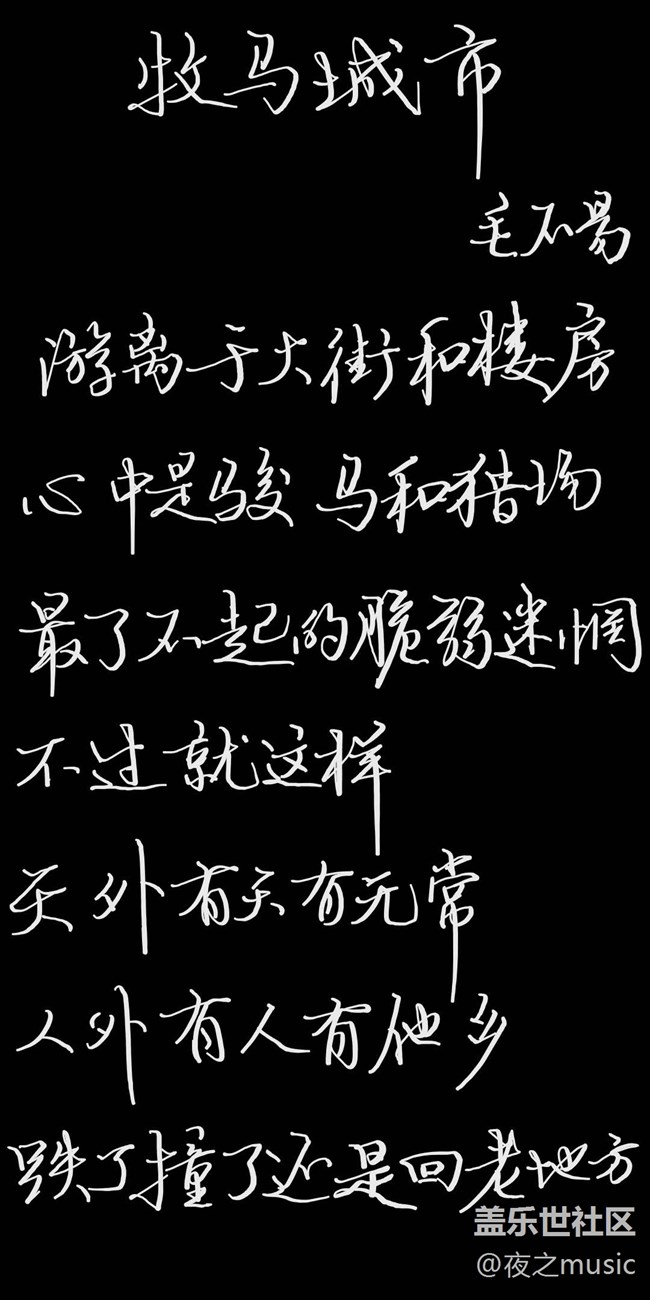 牧马城市
毛不易
游离于大街和楼房
心中是骏马和猎场
最了不起的脆弱迷惘
不过就这样
天外有天有无常
人外有人有他乡
跌了撞了还是回老地方
盖乐世社区
@夜之music